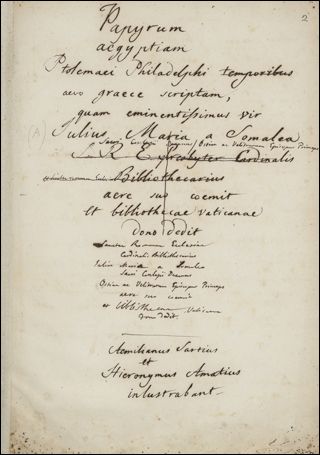 2
Papyrum
aegyptiam
Ptolemaei Philadelphi temporibus
aevo graece scriptam,
quam eminentissimus vir
(A)
Julius Maria a Somalea
Sacri Collegii Decanus, Ostien ac Veliternen Episcopus Princeps
S. R. E. Presbyter Cardinalis
Bibliothecarius
aere suo coemit
et bibliothecae Vaticanae
dono dedit
Sanctae Romanae Ecclesiae
Cardinalis Bibliothecarius
Julius Maria a Somalea
Sacri Collegii Decanus
Ostien ac Veliternen Episcopus Princeps
aere suo coemit
et bibliothecae Vaticanae
dono dedit.
Aemilianus Sartius
et
Hieronymus Amatius
inlustrabant